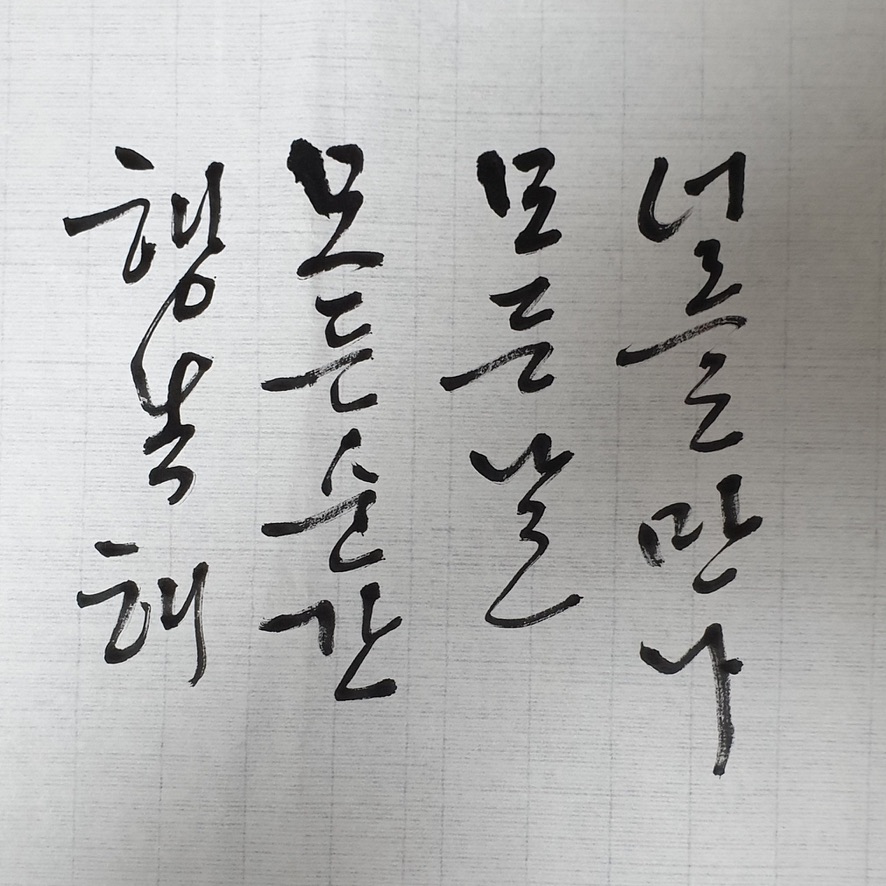 너를만나
모든날
모든순간
행복해